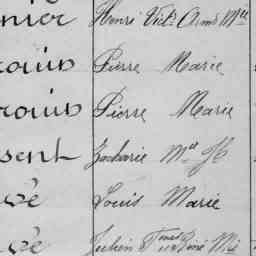 nier Henri Vict. Armd Mie
rouin Pierre Marie
rouin Pierre Marie
sent Zacharie Mie
vé Louis Marie
vé Julien René Mie